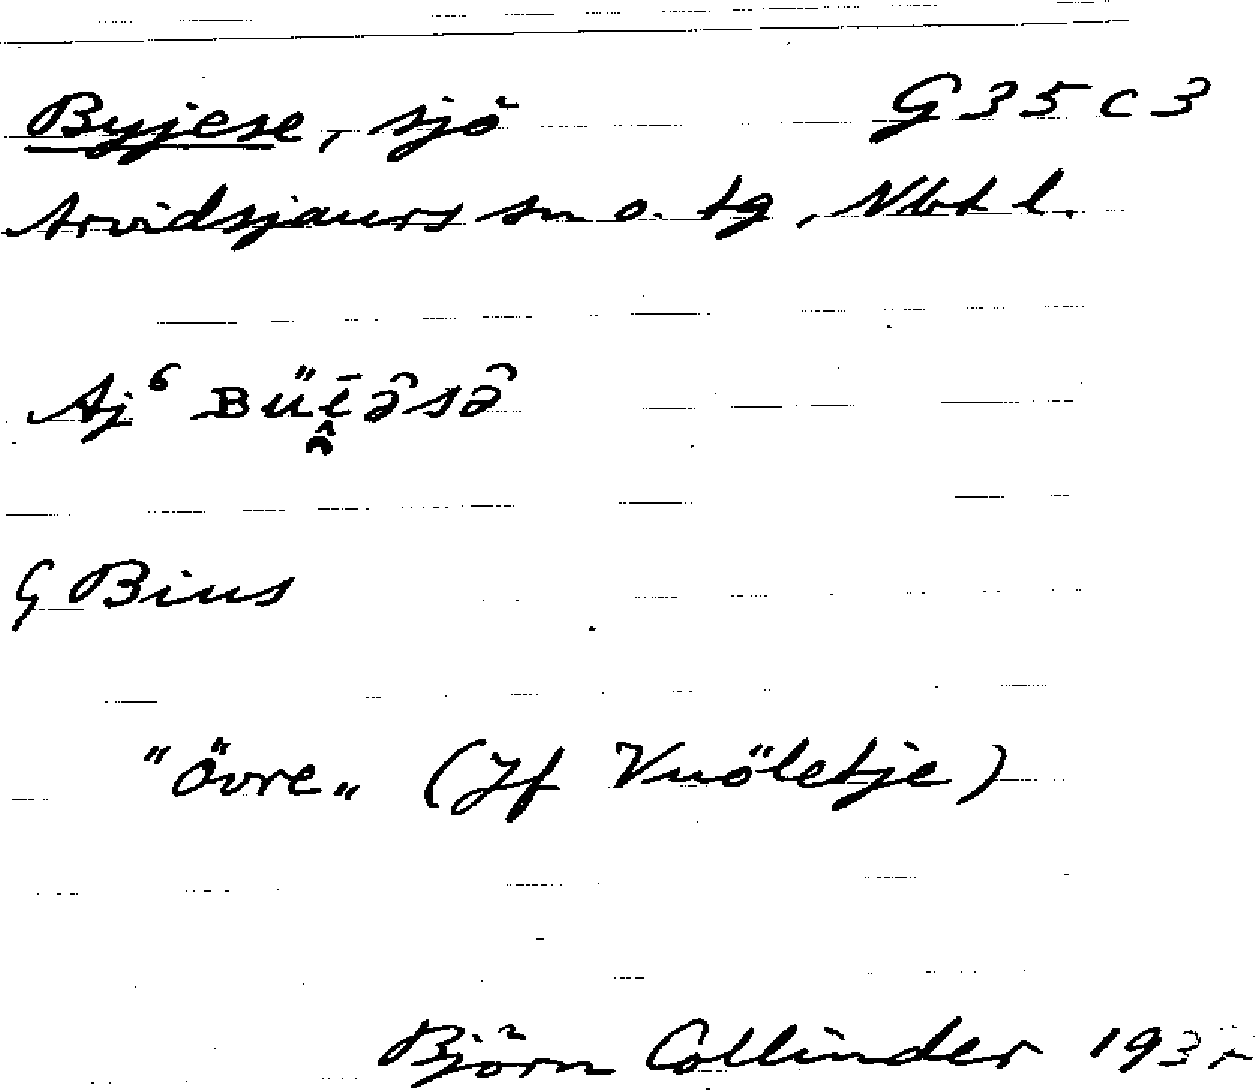 Byjese, sjö G35c3
Arvidsjaurs sn o. tg, Nbt l.
Aj⁶
G Bius
"övre" (Jf Vuöletje)
Björn Collinder